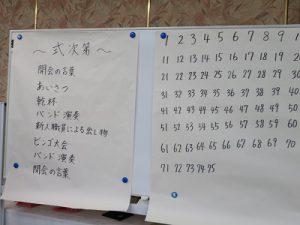 ～式次第～
開会の言葉
あいさつ
乾杯
バンド演奏
新入職員による出し物
ビンゴ大会
バンド演奏
閉会の言葉
1 2 3 4 5 6 7 8 9
11 12 13 14 15 16 17 18 19 20
21 22 23 24 25 26 27 28 29 30
31 32 33 34 35 36 37 38 39 40
41 42 43 44 45 46 47 48 49 50
51 52 53 54 55 56 57 58 59 60
61 62 63 64 65 66 67 68 69 70
71 72 73 74 75